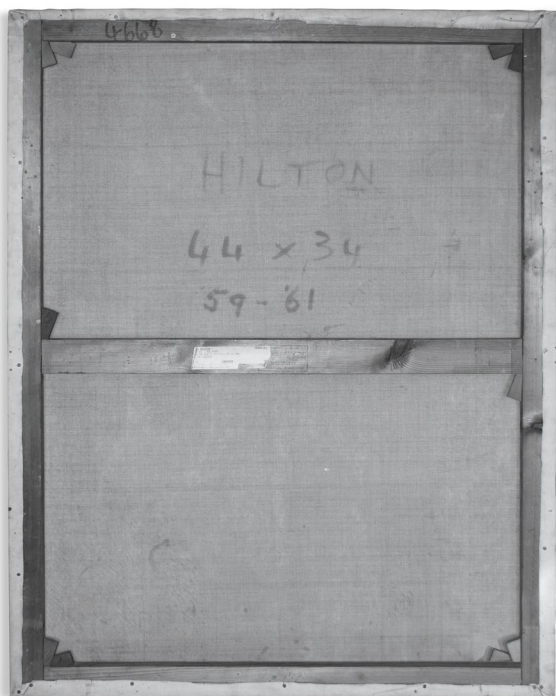 4668
HILTON
44 x 34
59-'61